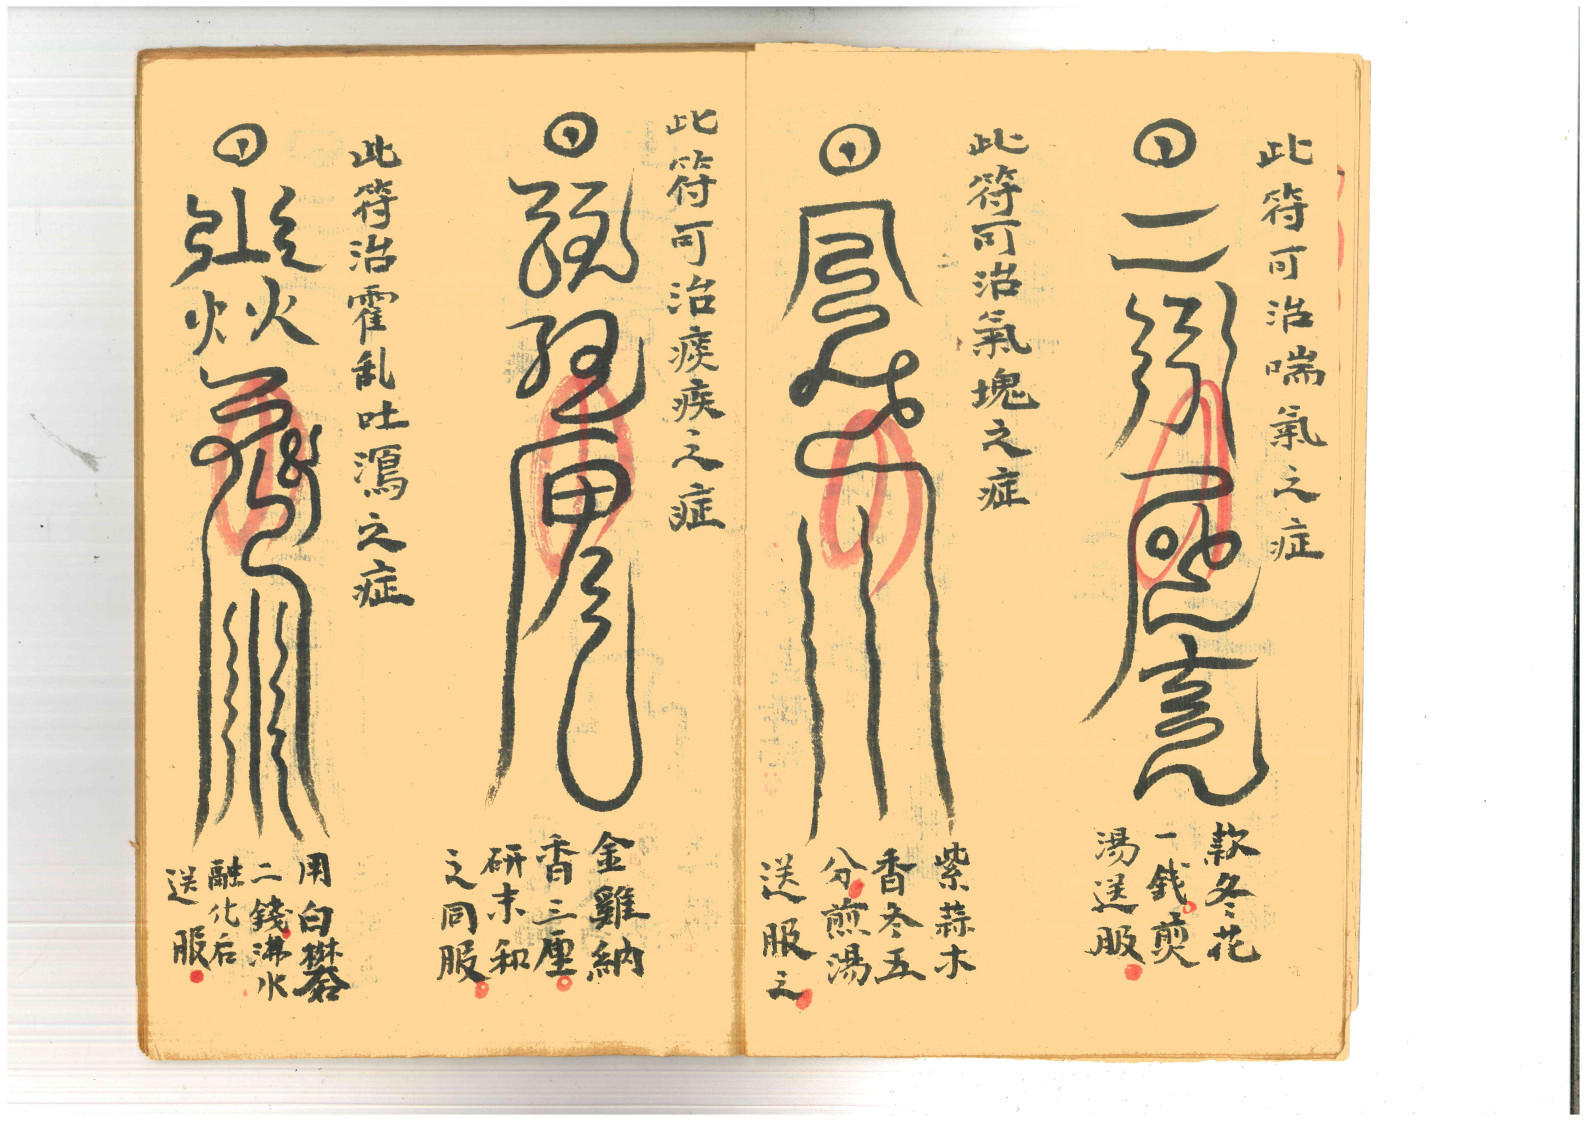 此符可治喘氣之症
款冬花
一錢煎
湯送服
此符可治氣塊之症
紫蒜木
香冬五
分煎湯
送服之
此符可治痰疾之症
金雞納
香三厘
研末和
之同服
此符治霍乱吐瀉之症
用白礬
二錢沸水
融化后
送服